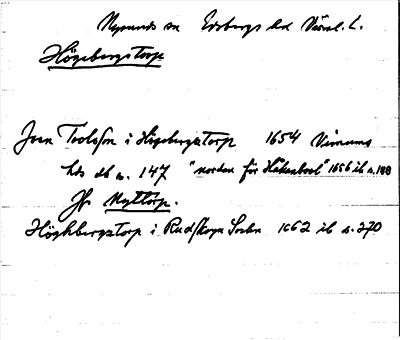 Nysunds sn Edsbergs hd Värml. l.
Högebergstorp
Joen Toolsson i Högebergztorp 1654 Visnums
hds db s. 147 "nordan för Håkanbool" 1656 ib s. 188
Jfr Nyttorp.
Höghbergztorp i Rudskoga Sochn 1662 ib s. 270